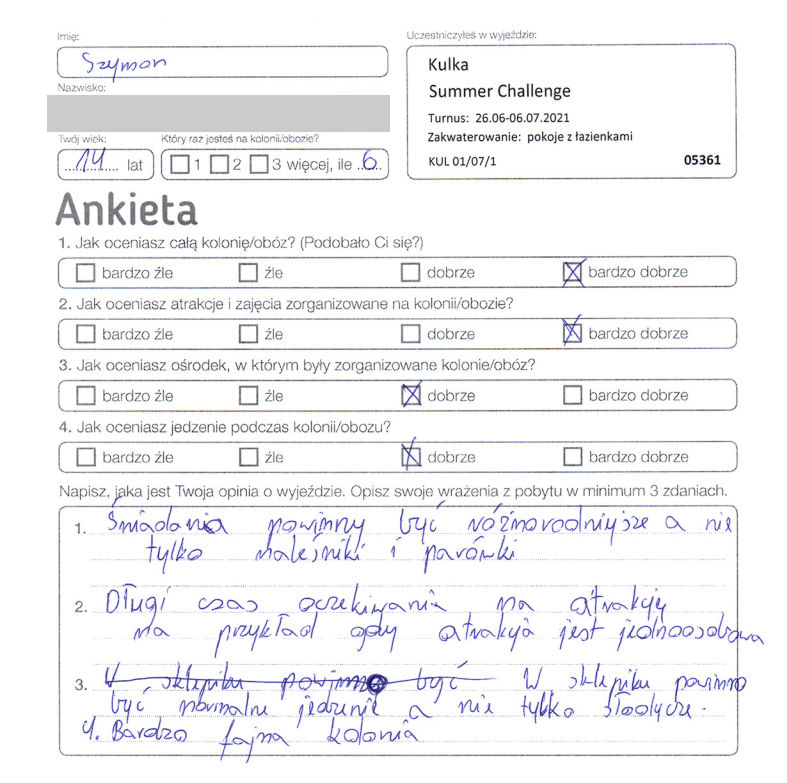 Imię:
Szymon
Nazwisko:
Twój wiek:
14 lat
Który raz jesteś na kolonii/obozie?
1 2 3 więcej, ile 6
Uczestniczyłeś w wyjeździe:
Kulka
Summer Challenge
Turnus: 26.06-06.07.2021
Zakwaterowanie: pokoje z łazienkami
KUL 01/07/1 05361
Ankieta
1. Jak oceniasz całą kolonię/obóz? (Podobało Ci się?)
bardzo źle źle dobrze bardzo dobrze
2. Jak oceniasz atrakcje i zajęcia zorganizowane na kolonii/obozie?
bardzo źle źle dobrze bardzo dobrze
3. Jak oceniasz ośrodek, w którym były zorganizowane kolonie/obóz?
bardzo źle źle dobrze bardzo dobrze
4. Jak oceniasz jedzenie podczas kolonii/obozu?
bardzo źle źle dobrze bardzo dobrze
Napisz, jaka jest Twoja opinia o wyjeździe. Opisz swoje wrażenia z pobytu w minimum 3 zdaniach.
1. Śniadania powinny być różnorodniejsze a nie
tylko naleśniki i parówki
2. Długi czas oczekiwania na atrakcję
na przykład gdy atrakcja jest jednoosobowa
3. W sklepiku powinno być W sklepiku powinno
być normalne jedzenie a nie tylko słodycze.
4. Bardzo fajna kolonia